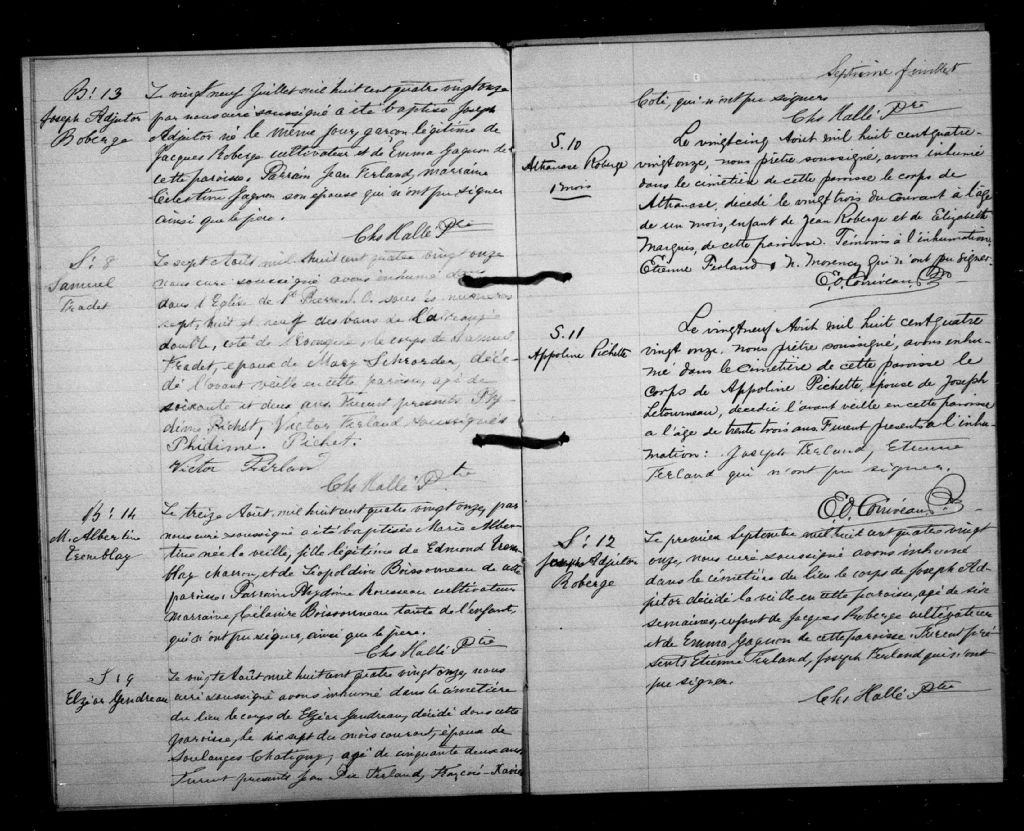 B. 13
Joseph Adjutor
Roberge
Le vingt neuf Juillet mil huit cent quatre vingt onze
par nous curé soussigné a été baptisé Joseph
Adjutor né le même jour, garçon légitime de
Jacques Roberge cultivateur et de Emma Gagnon de
cette paroisse. Parrain Jean Ferland, marraine
Célestine Gagnon son épouse qui n'ont pu signer
ainsi que le père.
Chs Hallé Ptre
S. 8
Samuel
Fradet
Le sept Août mil huit cent quatre vingt onze
nous curé soussigné avons inhumé
dans l'Eglise de St Pierre sous les numéros
sept, huit et neuf des bancs de la rangée
double, coté de l'Evangile, le corps de Samuel
Fradet, époux de Mary Schroeder, décé-
dé l'avant veille en cette paroisse, agé de
soixante et deux ans. Furent présents Phy
dime Pichet, Victor Ferland soussignés
Phidime Pichet.
Victor Ferland
Chs Hallé Ptre
B. 14
M. Albertine
Tremblay
Le treize Août, mil huit cent quatre vingt onze, par
nous curé soussigné a été baptisée Marie Alber-
tine née la veille, fille légitime de Edmond Trem
blay charron, et de Léopoldine Boissonneau de cette
paroisse. Parrain Phydime Rousseau cultivateur
Marraine, Célanire Boissonneau tante de l'enfant,
qui n'ont pu signer, ainsi que le père.
Chs Hallé Ptre
S 9
Elzéar Gendreau
Le vingt Août mil huit cent quatre vingt onze, nous
curé soussigné avons inhumé dans le cimetière
du lieu le corps de Elzéar Gendreau, décédé dans cette
paroisse, le dix sept du mois courant, époux de
Soulanges Chatigny, agé de cinquante deux ans
Furent présents Jean Ferland, François-Xavier
Septième feuillet
Coté, qui n'ont pu signer
Chs Hallé Ptre
S. 10
Athanase Roberge
1 mois
Le vingt cinq Août mil huit cent quatre-
vingt onze, nous prêtre soussigné, avons inhumé
dans le cimetière de cette paroisse le corps de
Athanase, décédé le vingt trois du courant à l'âge
de un mois, enfant de Jean Roberge et de Elizabeth
Marquis, de cette paroisse. Témoins à l'inhumation,
Etienne Ferland & N. Morency qui n'ont pu signer.
E. O. Corriveau Ptre
S. 11
Appoline Pichette
Le vingt neuf Août mil huit cent quatre
vingt onze, nous prêtre soussigné, avons inhu-
mé dans le cimetière de cette paroisse le
corps de Appoline Pichette, épouse de Joseph
Letourneau, décédée l'avant veille en cette paroisse
a l'âge de trente trois ans Furent présents à l'inhu-
mation: Joseph Ferland, Etienne
Ferland qui n'ont pu signer.
E. O. Corriveau Ptre
S. 12
Joseph Adjutor
Roberge
Le premier Septembre mil huit cent quatre vingt
onze, nous curé soussigné avons inhumé
dans le cimetière du lieu le corps de Joseph Ad-
jutor décédé la veille en cette paroisse, agé de six
semaines, enfant de Jacques Roberge cultivateur
et de Emma Gagnon de cette paroisse. Furent pré-
sents Etienne Ferland, Joseph Ferland qui n'ont
pu signer.
Chs Hallé Ptre